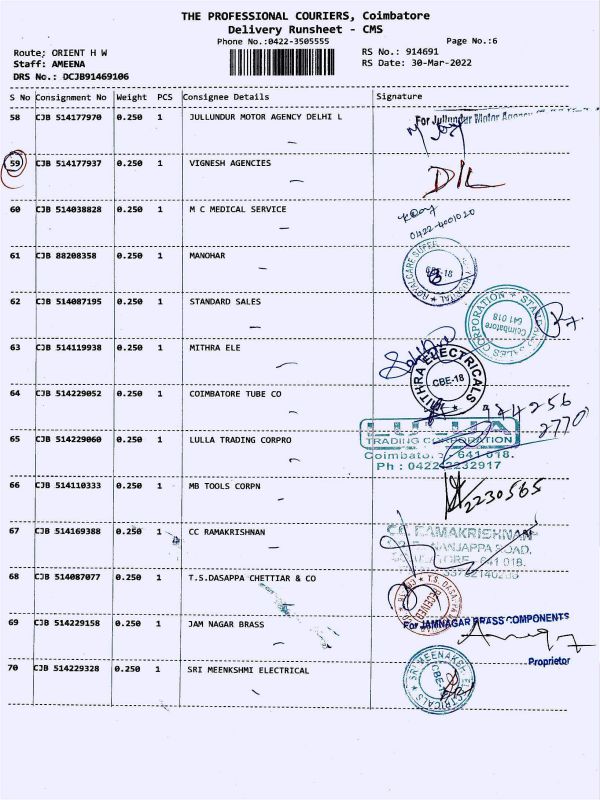 THE PROFESSIONAL COURIERS, Coimbatore
Delivery Runsheet - CMS
Phone No.:0422-3505555
Page No.:6
Route; ORIENT H W
RS No.: 914691
Staff: AMEENA
RS Date: 30-Mar-2022
DRS No.: DCJB91469106
S No Consignment No Weight PCS Consignee Details Signature
58 CJB 514177970 0.250 1 JULLUNDUR MOTOR AGENCY DELHI L
For Jullundur Motor Agency
59 CJB 514177937 0.250 1 VIGNESH AGENCIES
60 CJB 514038828 0.250 1 M C MEDICAL SERVICE
0422-4001020
61 CJB 88208358 0.250 1 MANOHAR
CBE-18
62 CJB 514087195 0.250 1 STANDARD SALES
Coimbatore
641 018
63 CJB 514119938 0.250 1 MITHRA ELE
MITHRA ELECTRICALS
CBE-18
64 CJB 514229052 0.250 1 COIMBATORE TUBE CO
944256
2770
65 CJB 514229060 0.250 1 LULLA TRADING CORPRO
LULLA
TRADING CORPORATION
641 018.
Ph : 0422-2232917
66 CJB 514110333 0.250 1 MB TOOLS CORPN
2230565
67 CJB 514169388 0.250 1 CC RAMAKRISHNAN
CC RAMAKRISHNAN
NANJAPPA ROAD,
641 018.
68 CJB 514087077 0.250 1 T.S.DASAPPA CHETTIAR & CO
RECEIVED
69 CJB 514229158 0.250 1 JAM NAGAR BRASS
For JAMNAGAR BRASS COMPONENTS
Proprietor
70 CJB 514229328 0.250 1 SRI MEENKSHMI ELECTRICAL
SRI MEENAKSHI ELECTRICALS